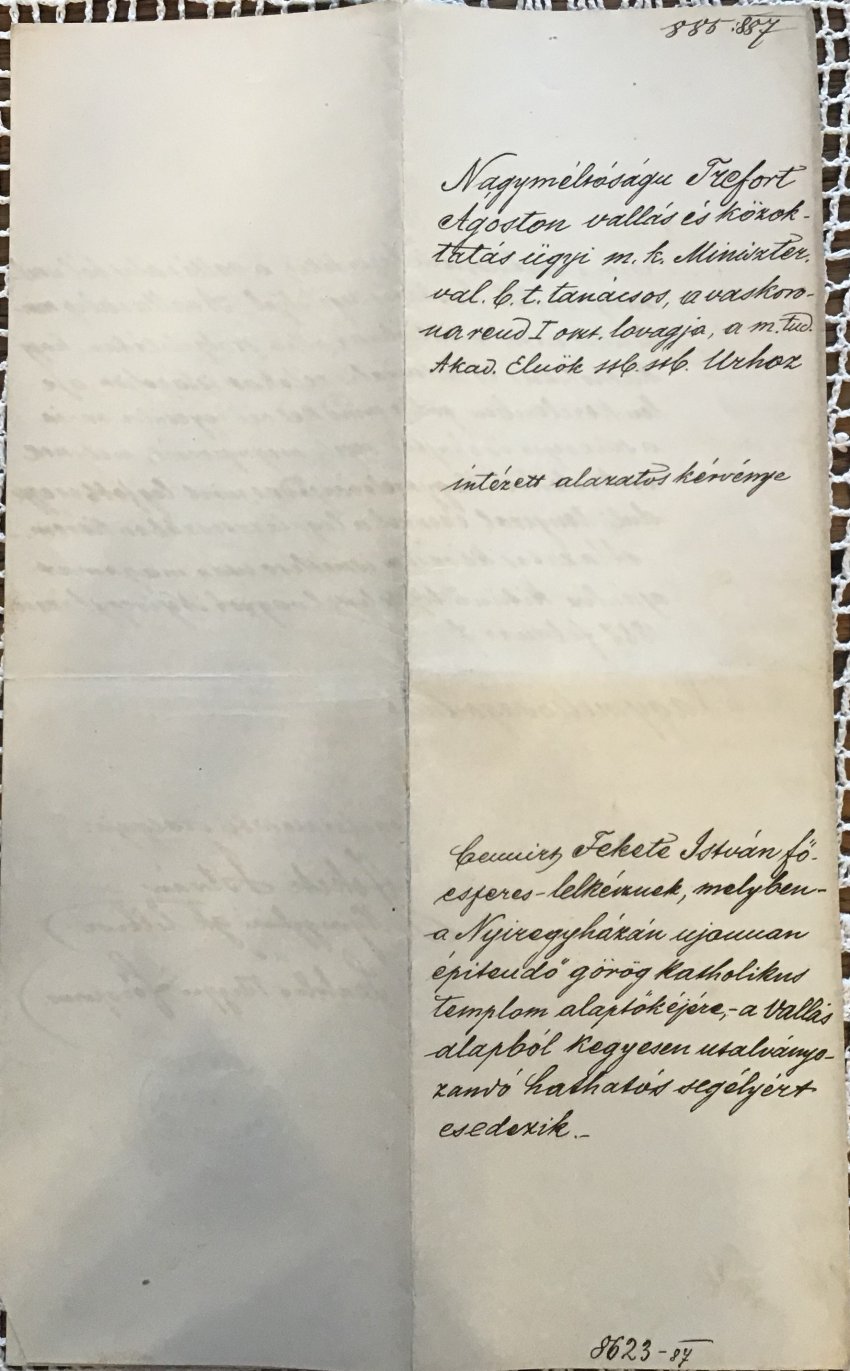 885 :887
Nagyméltóságu Trefort
Ágoston vallás és közok-
tatás ügyi m. k. Miniszter.
val. b. t. tanácsos, a vaskoro-
narend I oszt. lovagja, a m. tud.
Akad. Elnök stb. stb. Urhoz
intézett alazatos kérvénye
bennirt Fekete István fő-
esperes-lelkésznek, melyben-
a Nyiregyházán ujonnan
épitendő görög katholikus
templom alaptőkéjére,- a Vallás
alapból kegyesen utalványo-
zandó hathatós segélyért
esedezik.-
8623-87